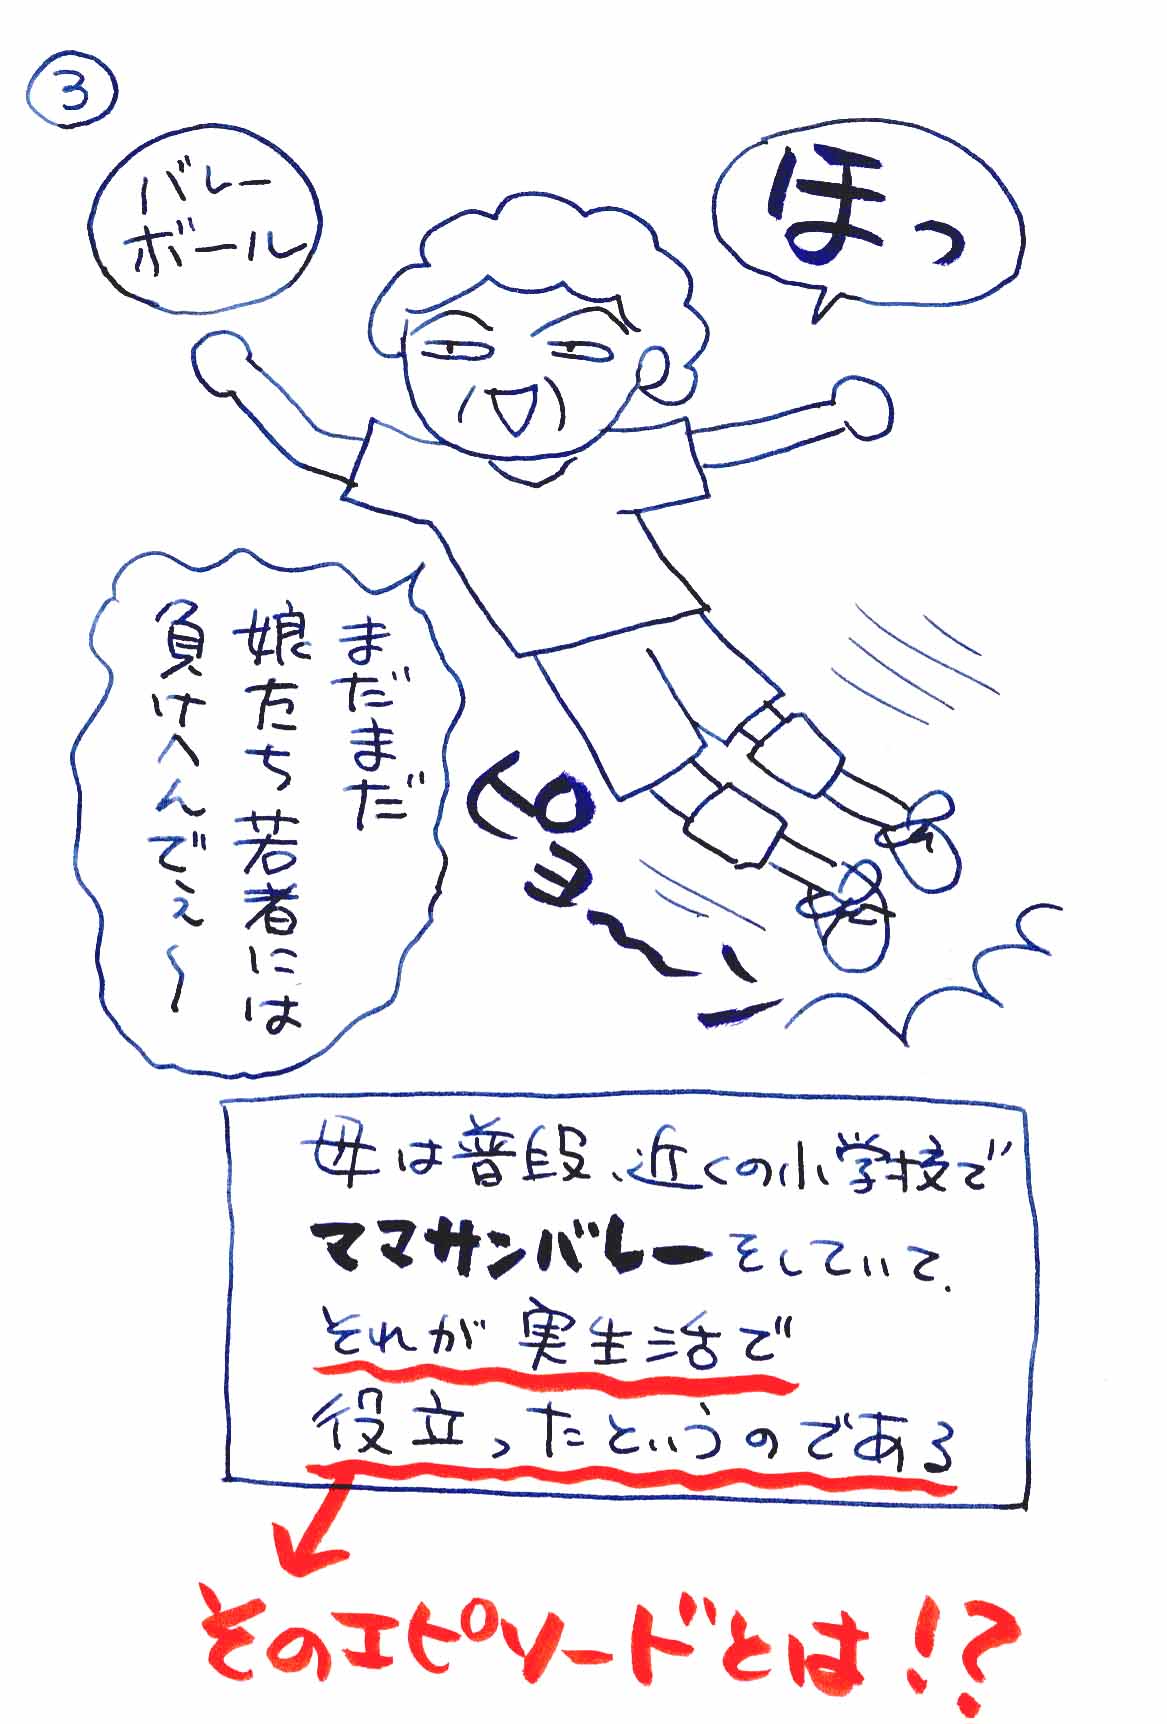 3
バレー
ボール
ほっ
まだまだ
娘たち若者には
負けへんでぇ〜
ピョーン
母は普段、近くの小学校で
ママサンバレーをしていて、
それが実生活で
役立ったというのである
そのエピソードとは!?